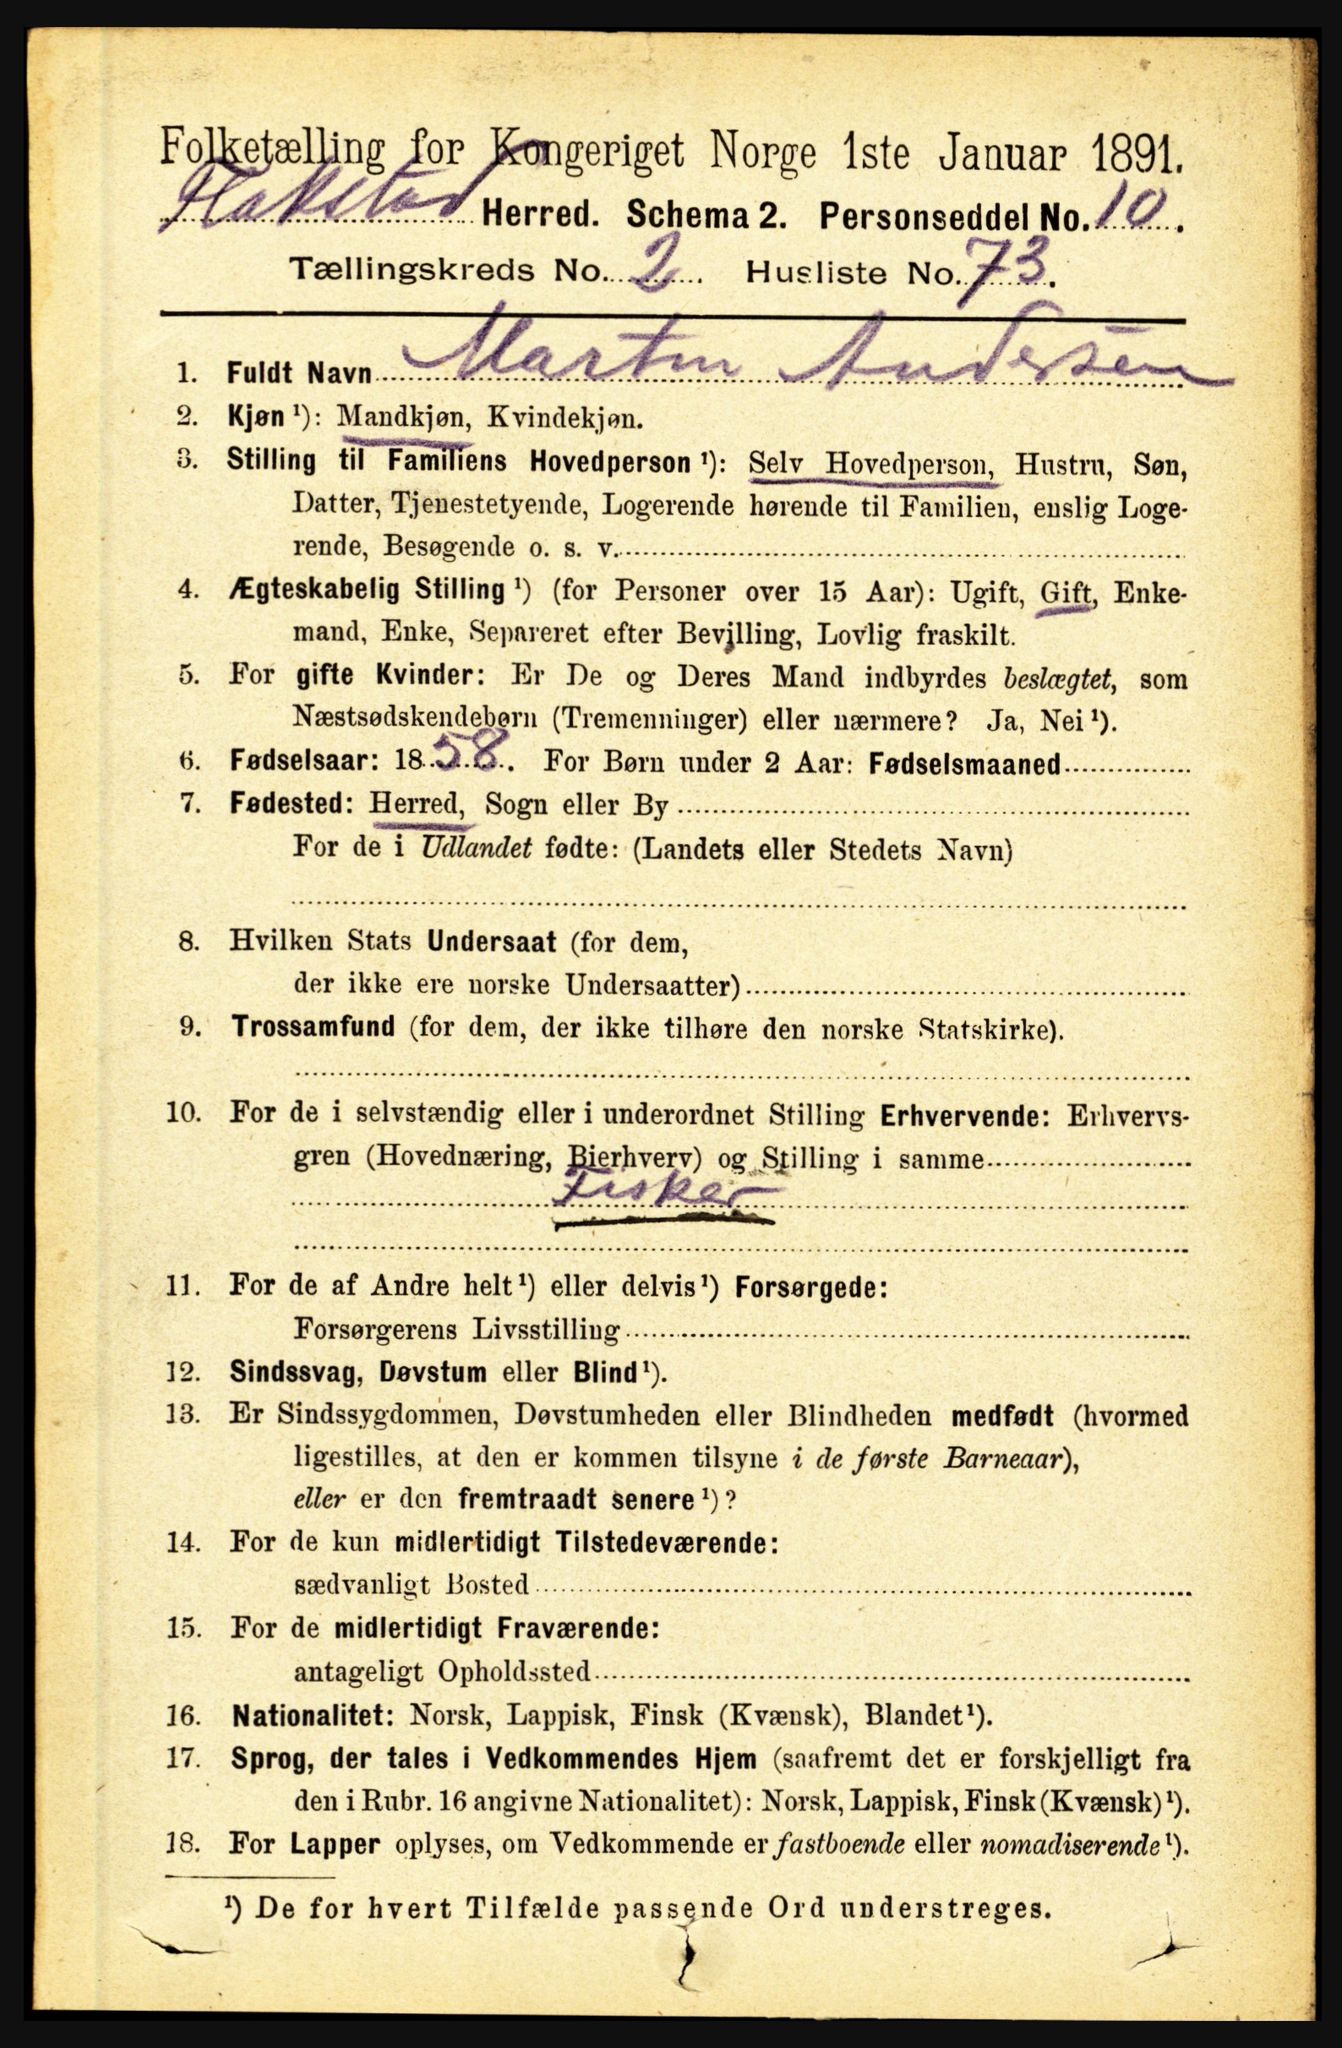 Folketælling for Kongeriget Norge 1ste Januar 1891.
Flakstad Herred. Schema 2. Personseddel No. 10.
Tællingskreds No. 2. Husliste No. 73.
1. Fuldt Navn Martin Andersen
2. Kjøn ¹): Mandkjøn, Kvindekjøn.
3. Stilling til Familiens Hovedperson ¹): Selv Hovedperson, Hustru, Søn,
Datter, Tjenestetyende, Logerende hørende til Familien, enslig Loge-
rende, Besøgende o. s. v.
4. Ægteskabelig Stilling ¹) (for Personer over 15 Aar): Ugift, Gift, Enke-
mand, Enke, Separeret efter Bevilling, Lovlig fraskilt.
5. For gifte Kvinder: Er De og Deres Mand indbyrdes beslægtet, som
Næstsødskendebørn (Tremenninger) eller nærmere? Ja, Nei ¹).
6. Fødselsaar: 1858. For Børn under 2 Aar: Fødselsmaaned
7. Fødested: Herred, Sogn eller By
For de i Udlandet fødte: (Landets eller Stedets Navn)
8. Hvilken Stats Undersaat (for dem,
der ikke ere norske Undersaatter)
9. Trossamfund (for dem, der ikke tilhøre den norske Statskirke).
10. For de i selvstændig eller i underordnet Stilling Erhvervende: Erhvervs-
gren (Hovednæring, Bierhverv) og Stilling i samme
Fisker
11. For de af Andre helt ¹) eller delvis ¹) Forsørgede:
Forsørgerens Livsstilling
12. Sindssvag, Døvstum eller Blind ¹).
13. Er Sindssygdommen, Døvstumheden eller Blindheden medfødt (hvormed
ligestilles, at den er kommen tilsyne i de første Barneaar),
eller er den fremtraadt senere ¹)?
14. For de kun midlertidigt Tilstedeværende:
sædvanligt Bosted
15. For de midlertidigt Fraværende:
antageligt Opholdssted
16. Nationalitet: Norsk, Lappisk, Finsk (Kvænsk), Blandet ¹).
17. Sprog, der tales i Vedkommendes Hjem (saafremt det er forskjelligt fra
den i Rubr. 16 angivne Nationalitet): Norsk, Lappisk, Finsk (Kvænsk) ¹).
18. For Lapper oplyses, om Vedkommende er fastboende eller nomadiserende ¹).
¹) De for hvert Tilfælde passende Ord understreges.